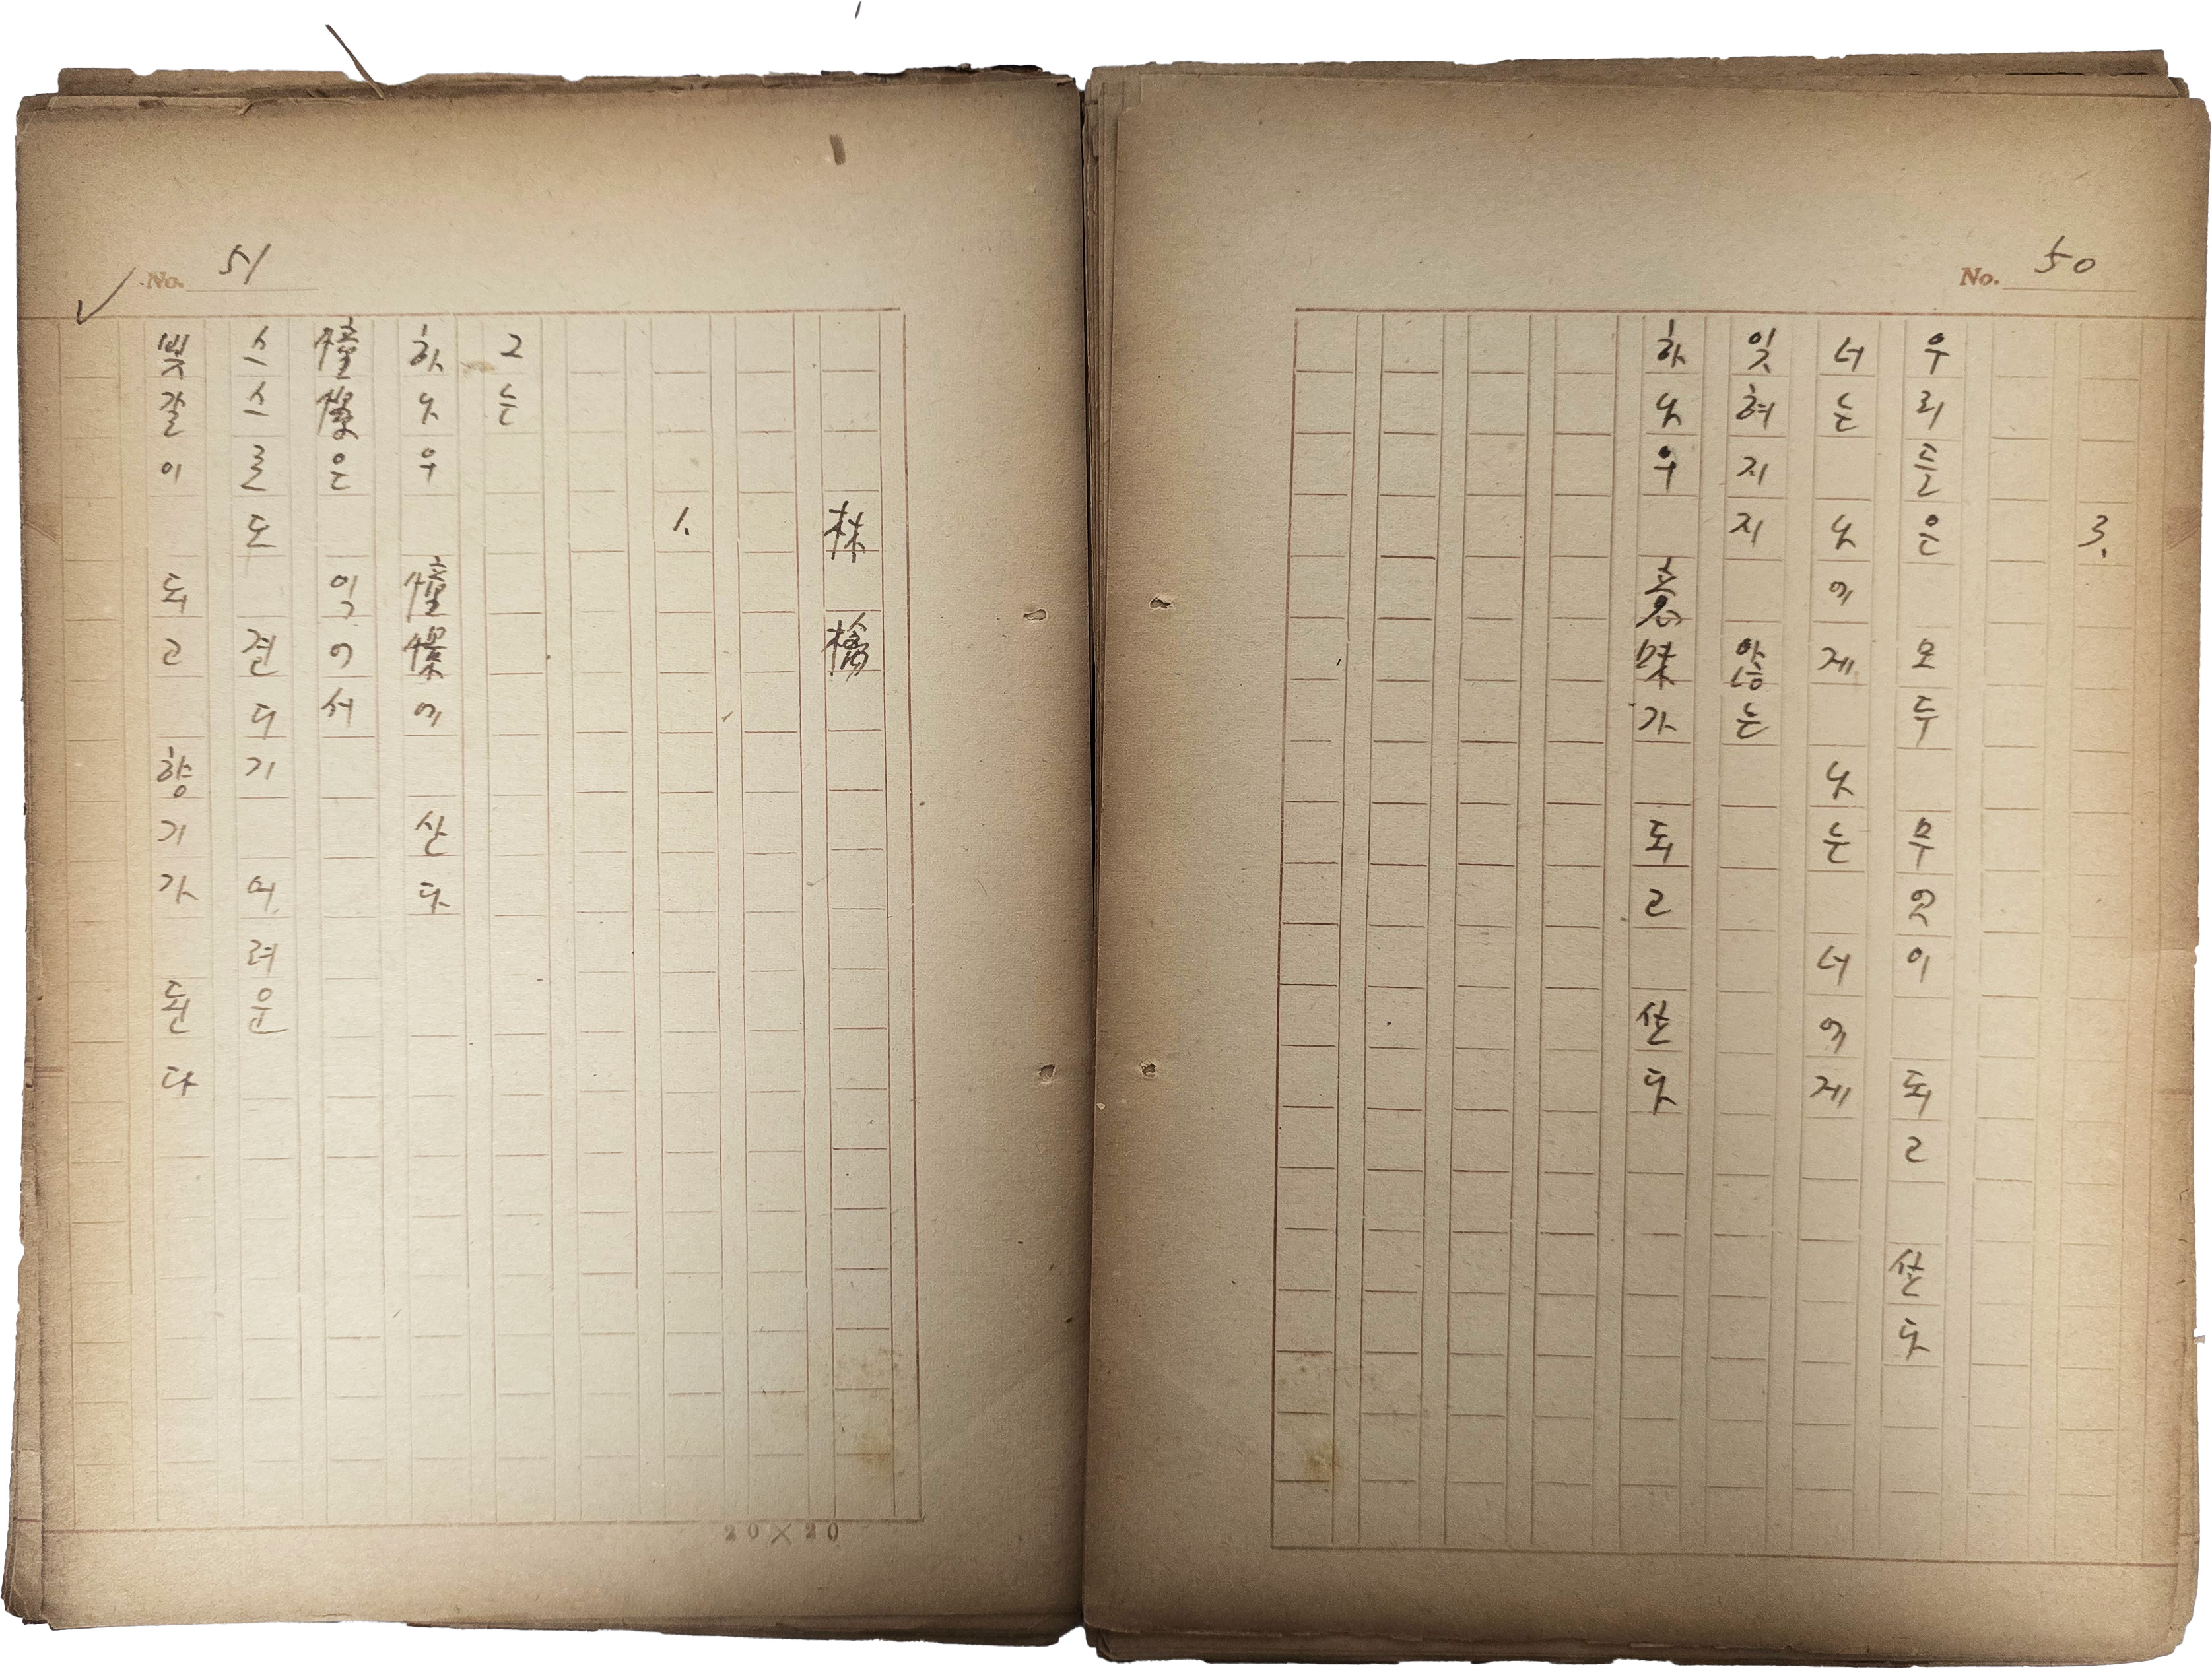 No. 50
3.
우리들은 모두 무엇이 되고 싶다
너는 나에게 나는 너에게
잊혀지지 않는
하나의 意味가 되고 싶다
No. 51
林檎
1.
그는
하나의 憧憬에 산다
憧憬은 익어서
스스로도 견디기 어려운
빛갈이 되고 향기가 된다
20×20